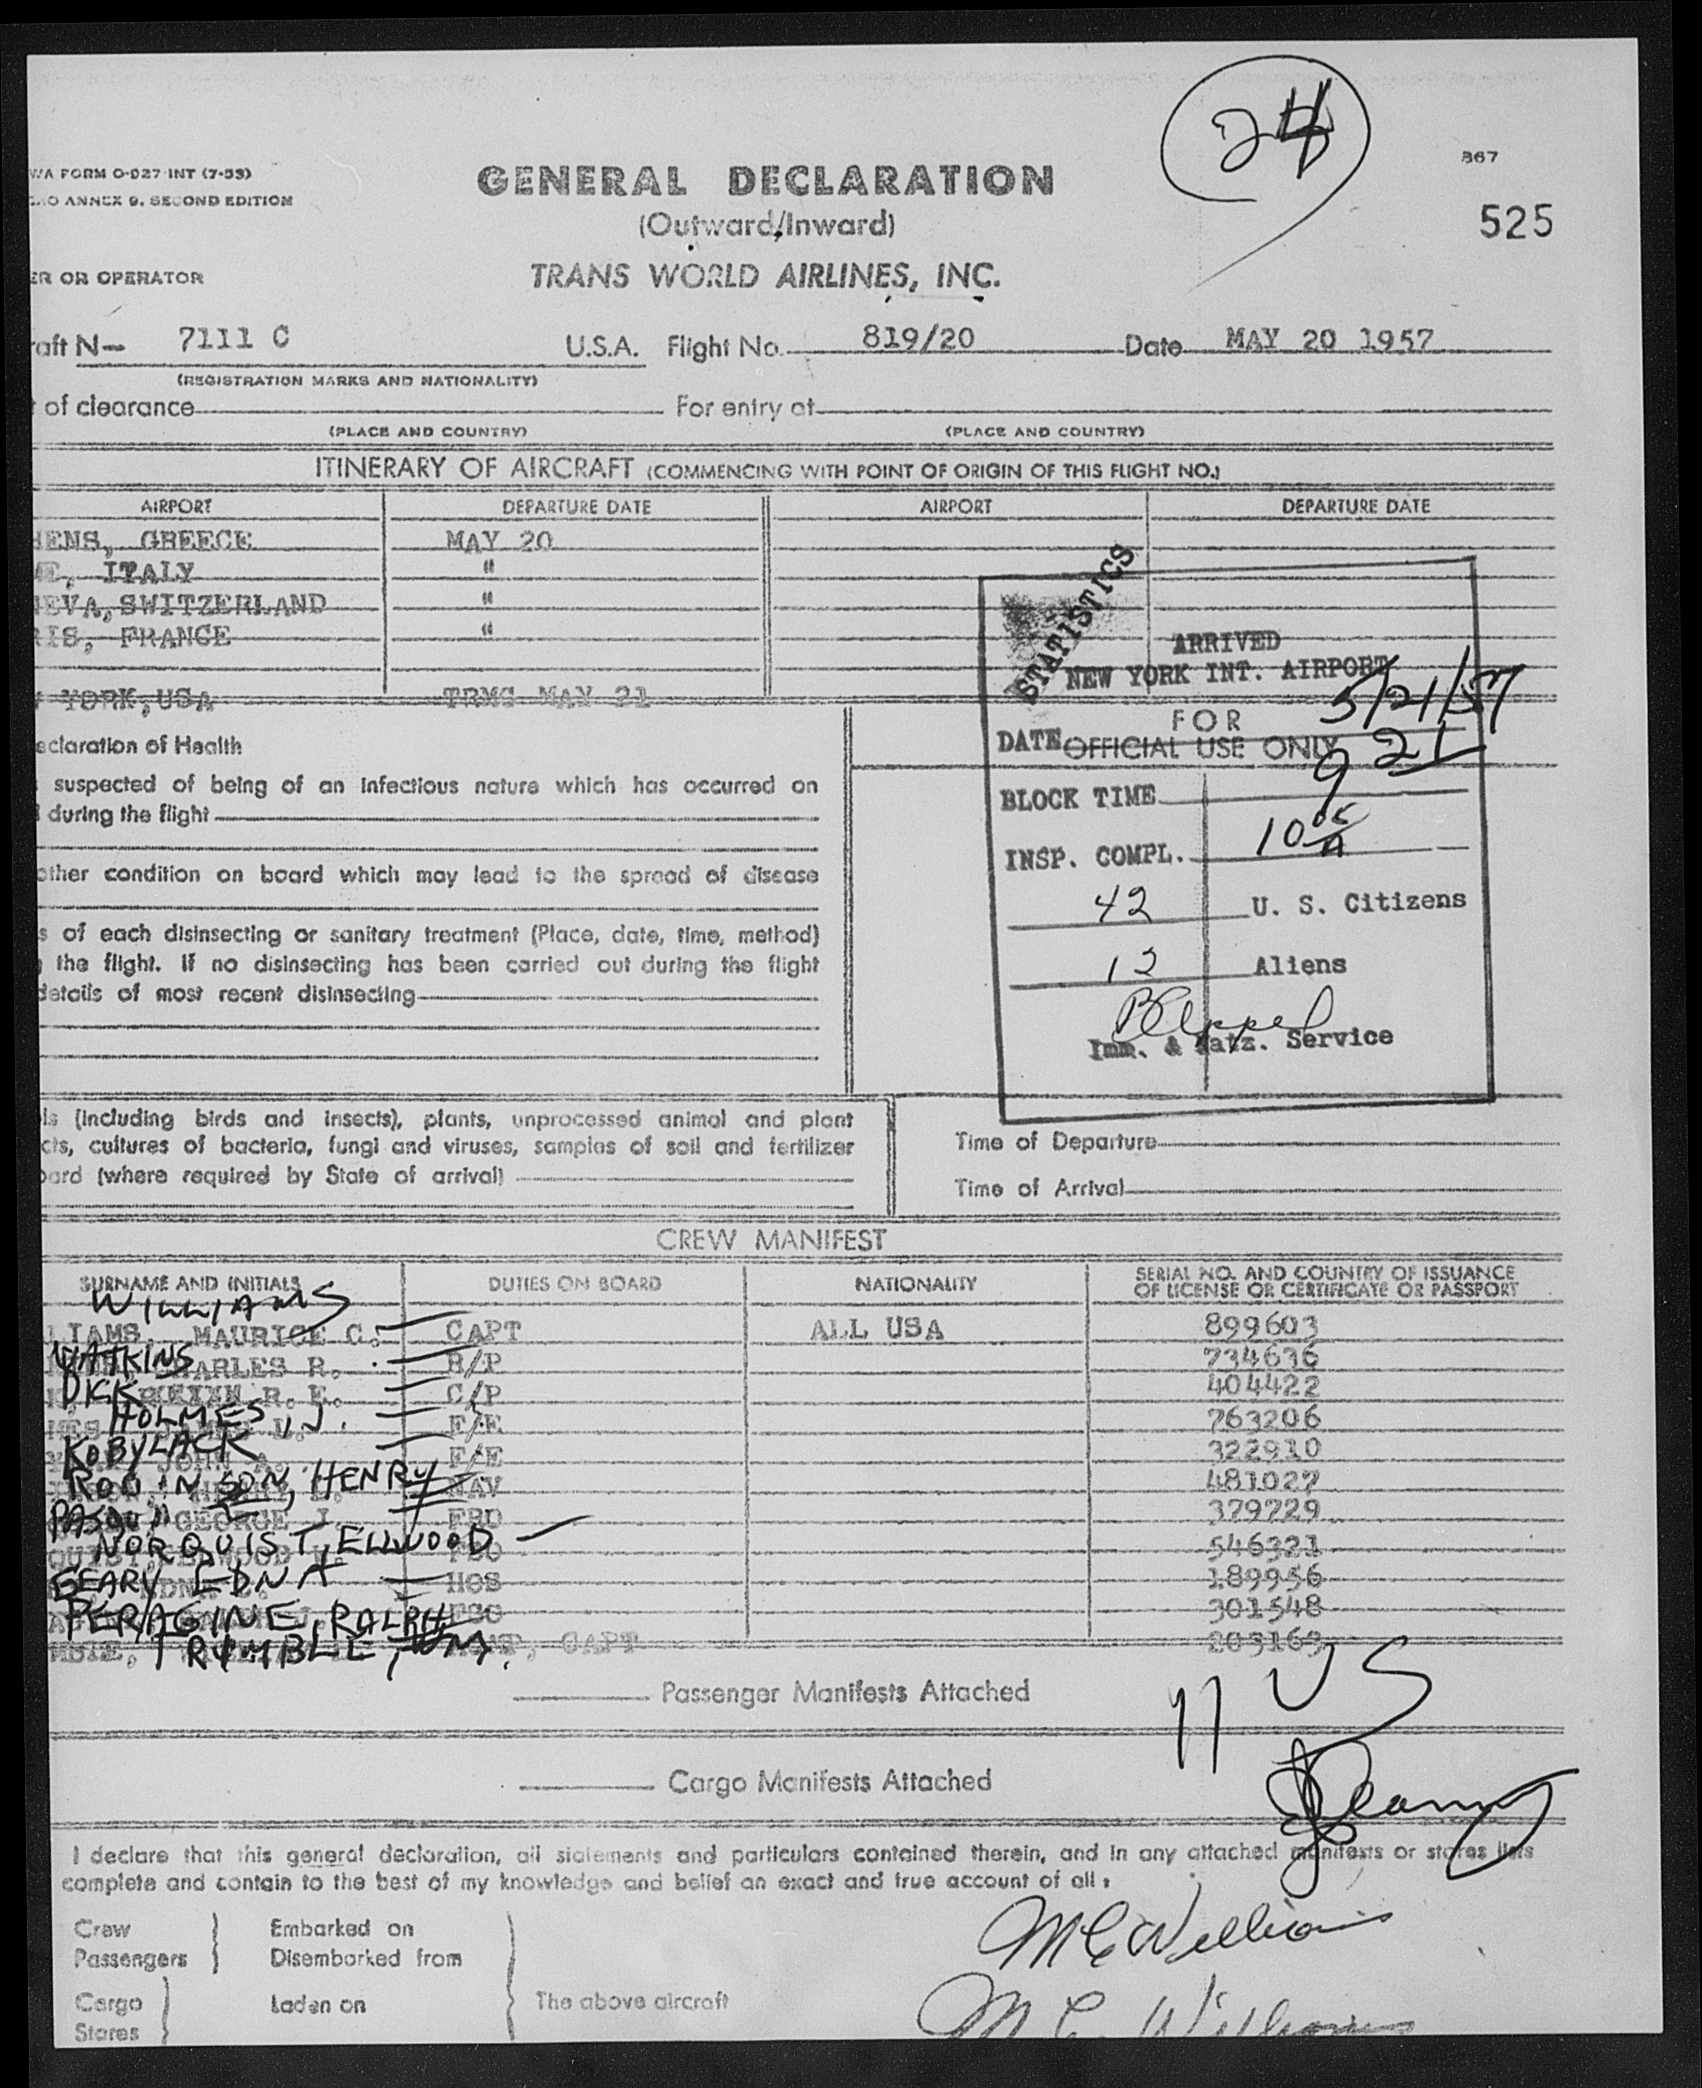 24
867
WA FORM O-027 INT (7-53)
GENERAL DECLARATION
ANNEX 9, SECOND EDITION
(Outward/Inward)
525
ER OR OPERATOR
TRANS WORLD AIRLINES, INC.
raft N— 7111 C U.S.A. Flight No. 819/20 Date MAY 20 1957
(REGISTRATION MARKS AND NATIONALITY)
of clearance For entry at
(PLACE AND COUNTRY) (PLACE AND COUNTRY)
ITINERARY OF AIRCRAFT (COMMENCING WITH POINT OF ORIGIN OF THIS FLIGHT NO.)
AIRPORT DEPARTURE DATE AIRPORT DEPARTURE DATE
HENS, GREECE MAY 20
ME, ITALY "
NEVA, SWITZERLAND "
RIS, FRANCE "
YORK, USA TRMG MAY 21
STATISTICS
ARRIVED
NEW YORK INT. AIRPORT
DATE 5/21/57
FOR
OFFICIAL USE ONLY
BLOCK TIME 9 21
INSP. COMPL. 10 05 A
42 U. S. Citizens
12 Aliens
Imm. & Natz. Service
eclaration of Health
suspected of being of an infectious nature which has occurred on
during the flight
other condition on board which may lead to the spread of disease
s of each disinsecting or sanitary treatment (Place, date, time, method)
the flight. If no disinsecting has been carried out during the flight
details of most recent disinsecting
ls (including birds and insects), plants, unprocessed animal and plant
cts, cultures of bacteria, fungi and viruses, samples of soil and fertilizer
oard (where required by State of arrival)
Time of Departure
Time of Arrival
CREW MANIFEST
SURNAME AND INITIALS DUTIES ON BOARD NATIONALITY SERIAL NO. AND COUNTRY OF ISSUANCE
OF LICENSE OR CERTIFICATE OR PASSPORT
WILLIAMS
LIAMS, MAURICE C. CAPT ALL USA 899603
WATKINS CHARLES R. B/P 734636
DICK R. E. C/P 404422
HOLMES, J. L. F/E 763206
KOBYLACK JOHN A. F/E 322910
ROBINSON, HENRY NAV 481027
PASQUII GEORGE J. FRO 379729
NORQUIST, ELLWOOD 546321
GEARY EDNA HOS 189956
PERAGINE, RALPH 301548
TRUMBLE, WM. CAPT 203163
11 US
Passenger Manifests Attached
Cargo Manifests Attached
I declare that this general declaration, all statements and particulars contained therein, and in any attached manifests or stores lists
complete and contain to the best of my knowledge and belief an exact and true account of all:
Crew Embarked on
Passengers Disembarked from
Cargo Laden on The above aircraft
Stores
M C Williams
M C Williams